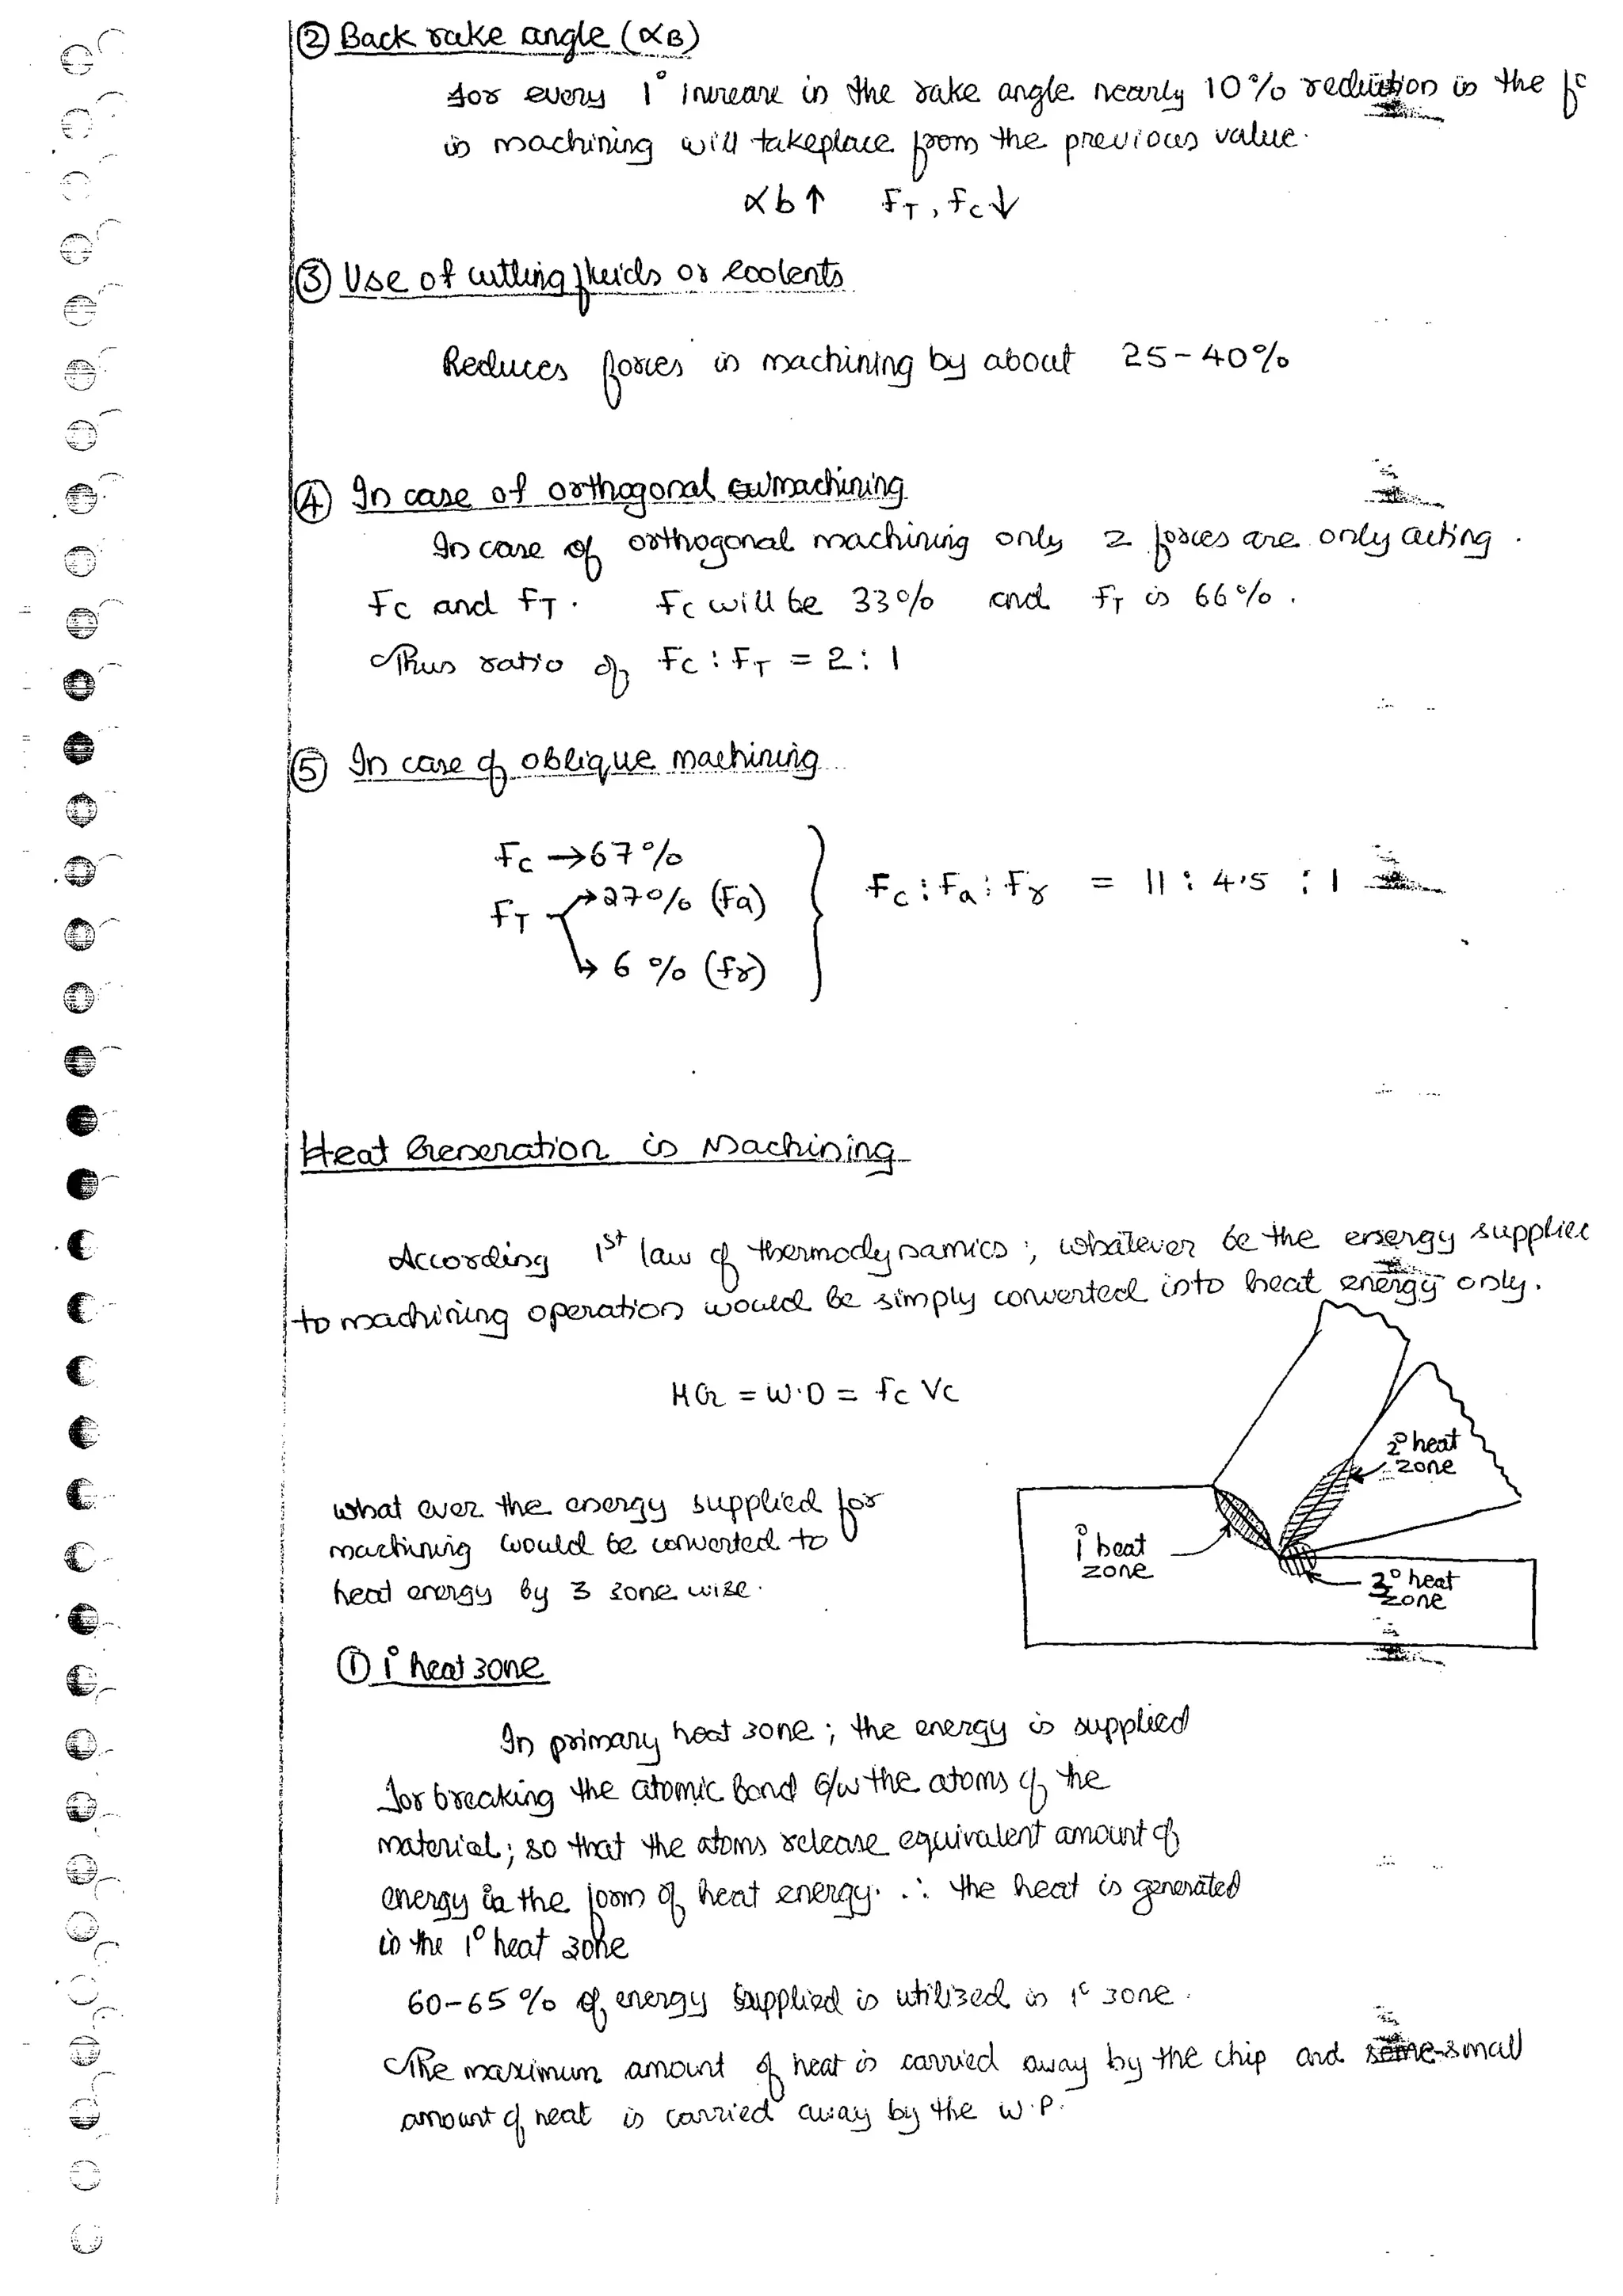 ② Back rake angle (αB)
for every 1° increase in the rake angle nearly 10% reduction in the fc
in machining will takeplace from the previous value.
αb↑ FT, fc↓
③ Use of cutting fluids or coolents
Reduces forces in machining by about 25-40%
④ In case of orthogonal machining
In case of orthogonal machining only 2 forces are only acting.
Fc and FT. Fc will be 33% and FT is 66%.
Thus ratio of Fc : FT = 2 : 1
⑤ In case of oblique machining
Fc → 67%
FT → 27% (Fa)
↳ 6% (fr)
Fc : Fa : Fr = 11 : 4.5 : 1
Heat Generation in Machining
According 1st law of thermodynamics; whatever be the energy supplied
to machining operation would be simply converted into heat energy only.
HG = W.D = fc Vc
2° heat
zone
what ever the energy supplied for
machining would be converted to
heat energy by 3 zone wise.
1° heat
zone
3° heat
zone
① 1° heat zone
In primary heat zone; the energy is supplied
for breaking the atomic bond b/w the atoms of the
material; so that the atoms release equivalent amount of
energy in the form of heat energy. ∴ the heat is generated
in the 1° heat zone
60-65% of energy supplied is utilized in 1° zone.
The maximum amount of heat is carried away by the chip and some small
amount of heat is carried away by the w.p.